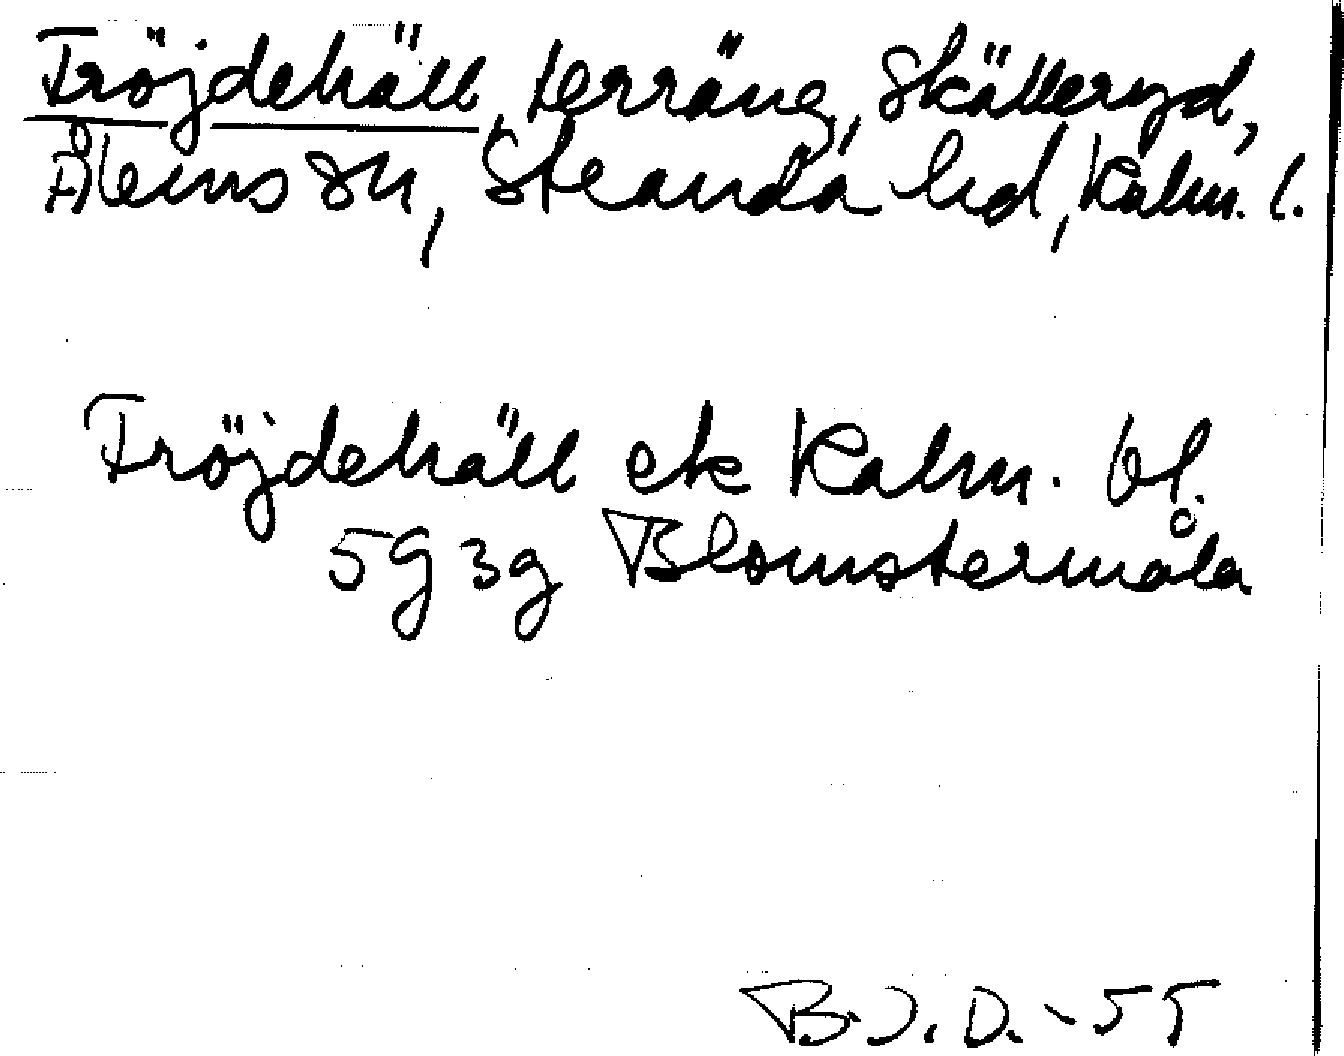 Tröjdehäll, terräng, Skälleryd,
Ålems sn, Stranda hd, Kalm. l.
Tröjdehäll ek Kalm. bl.
5g 3g Blomstermåla
B.J.D. -55